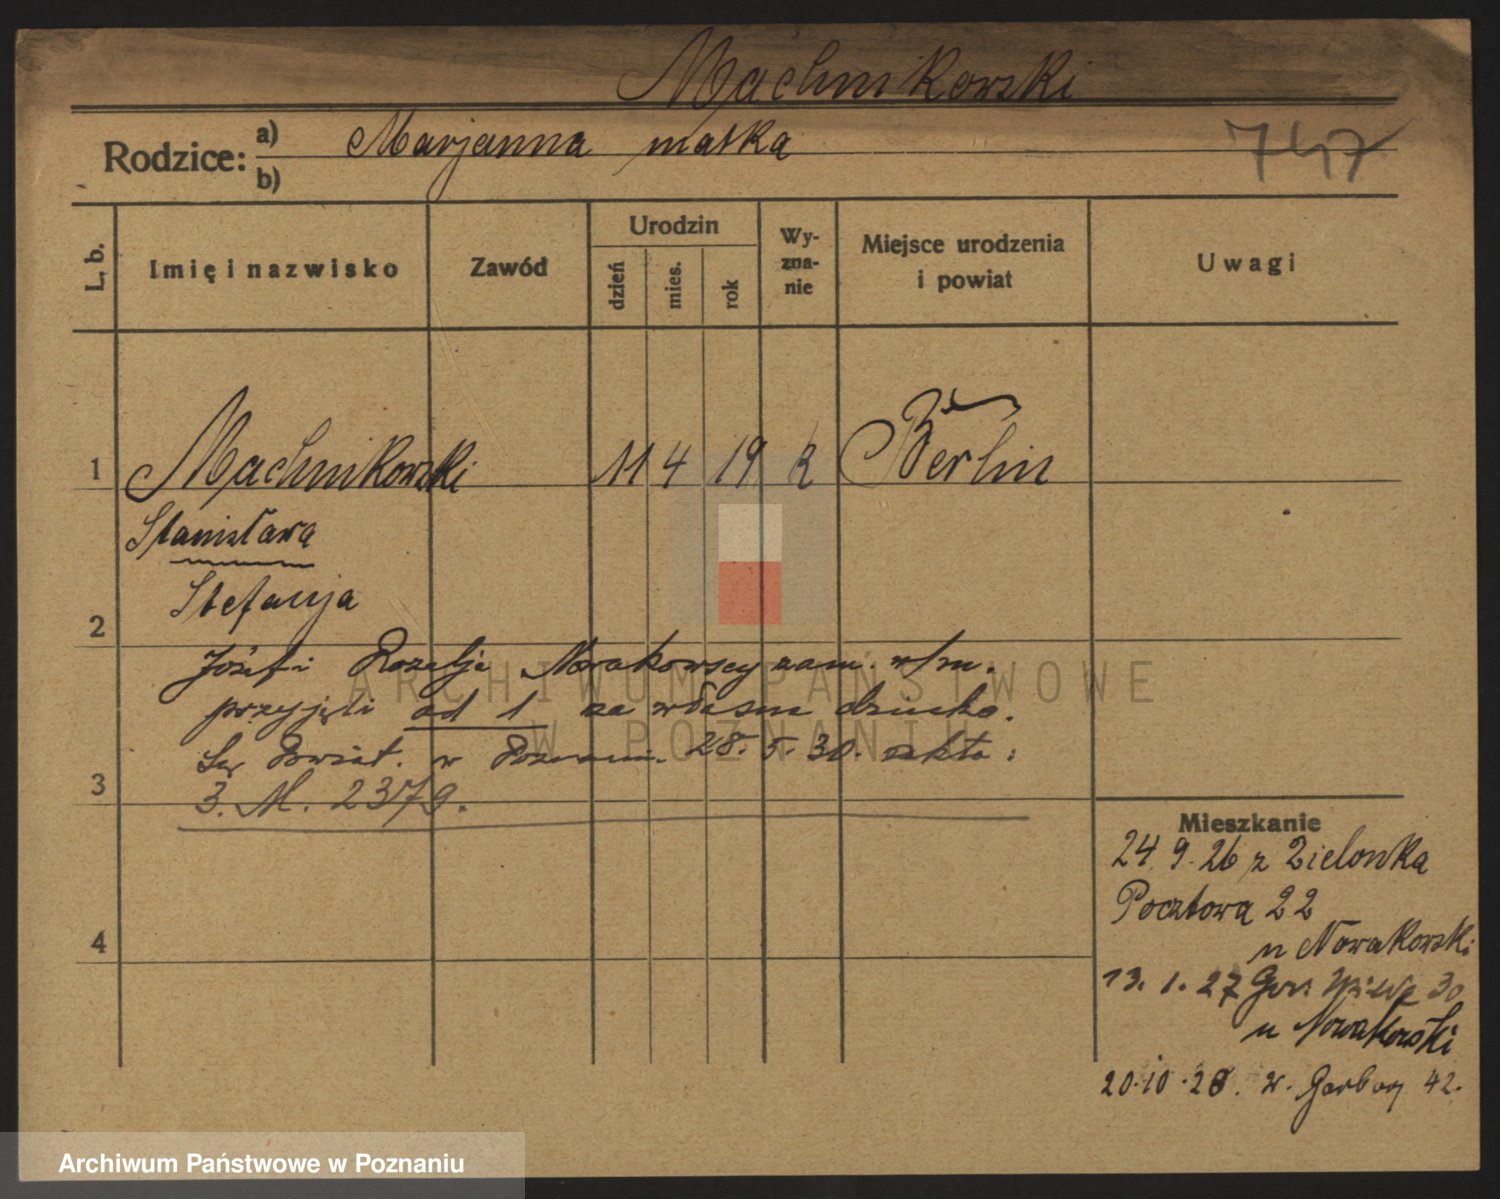 Machnikowski
Rodzice: a) Marjanna matka
b)
747
L. b. Imię i nazwisko Zawód Urodzin dzień mies. rok Wy-zna-nie Miejsce urodzenia i powiat Uwagi
1 Machnikowski 11 4 19 k Berlin
Stanisława
2 Stefanja
Józef i Rozalja Nowakowscy zam. w/m.
przyjęli od 1 za własne dziecko.
Powiat. w Poznaniu. 28. 5. 30. :
3 3. M. 2379.
4
Mieszkanie
24. 9. 26 z Zielonka
Pocztowa 22
u Nowakowski
13. 1. 27 Gór. Wilda 30
u Nowakowski
20.10.28. w. Garbary 42.
ARCHIWUM PAŃSTWOWE
W POZNANIU
Archiwum Państwowe w Poznaniu